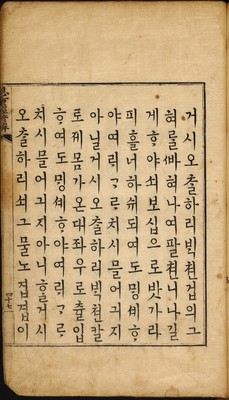 거시오 츌하리 빅쳔겁의 그
혀를 ᄲᅡ혀나여 팔쳔니나 길
게 ᄒᆞ야 쇠보십으로 밧가라
피 흘너 하슈되여도 밍셰ᄒᆞ
야 여ᄅᆡㄱㄹ치시믈 어긔지
아닐거시오 츌하리 빅쳔칼
로 제 몸가온대 좌우로 츌입
ᄒᆞ여도 밍셰ᄒᆞ야 여ᄅᆡㄱㄹ
치시믈 어긔지 아니ᄒᆞᆯ거시
오 츌하리 쇠그물노 겹겹이